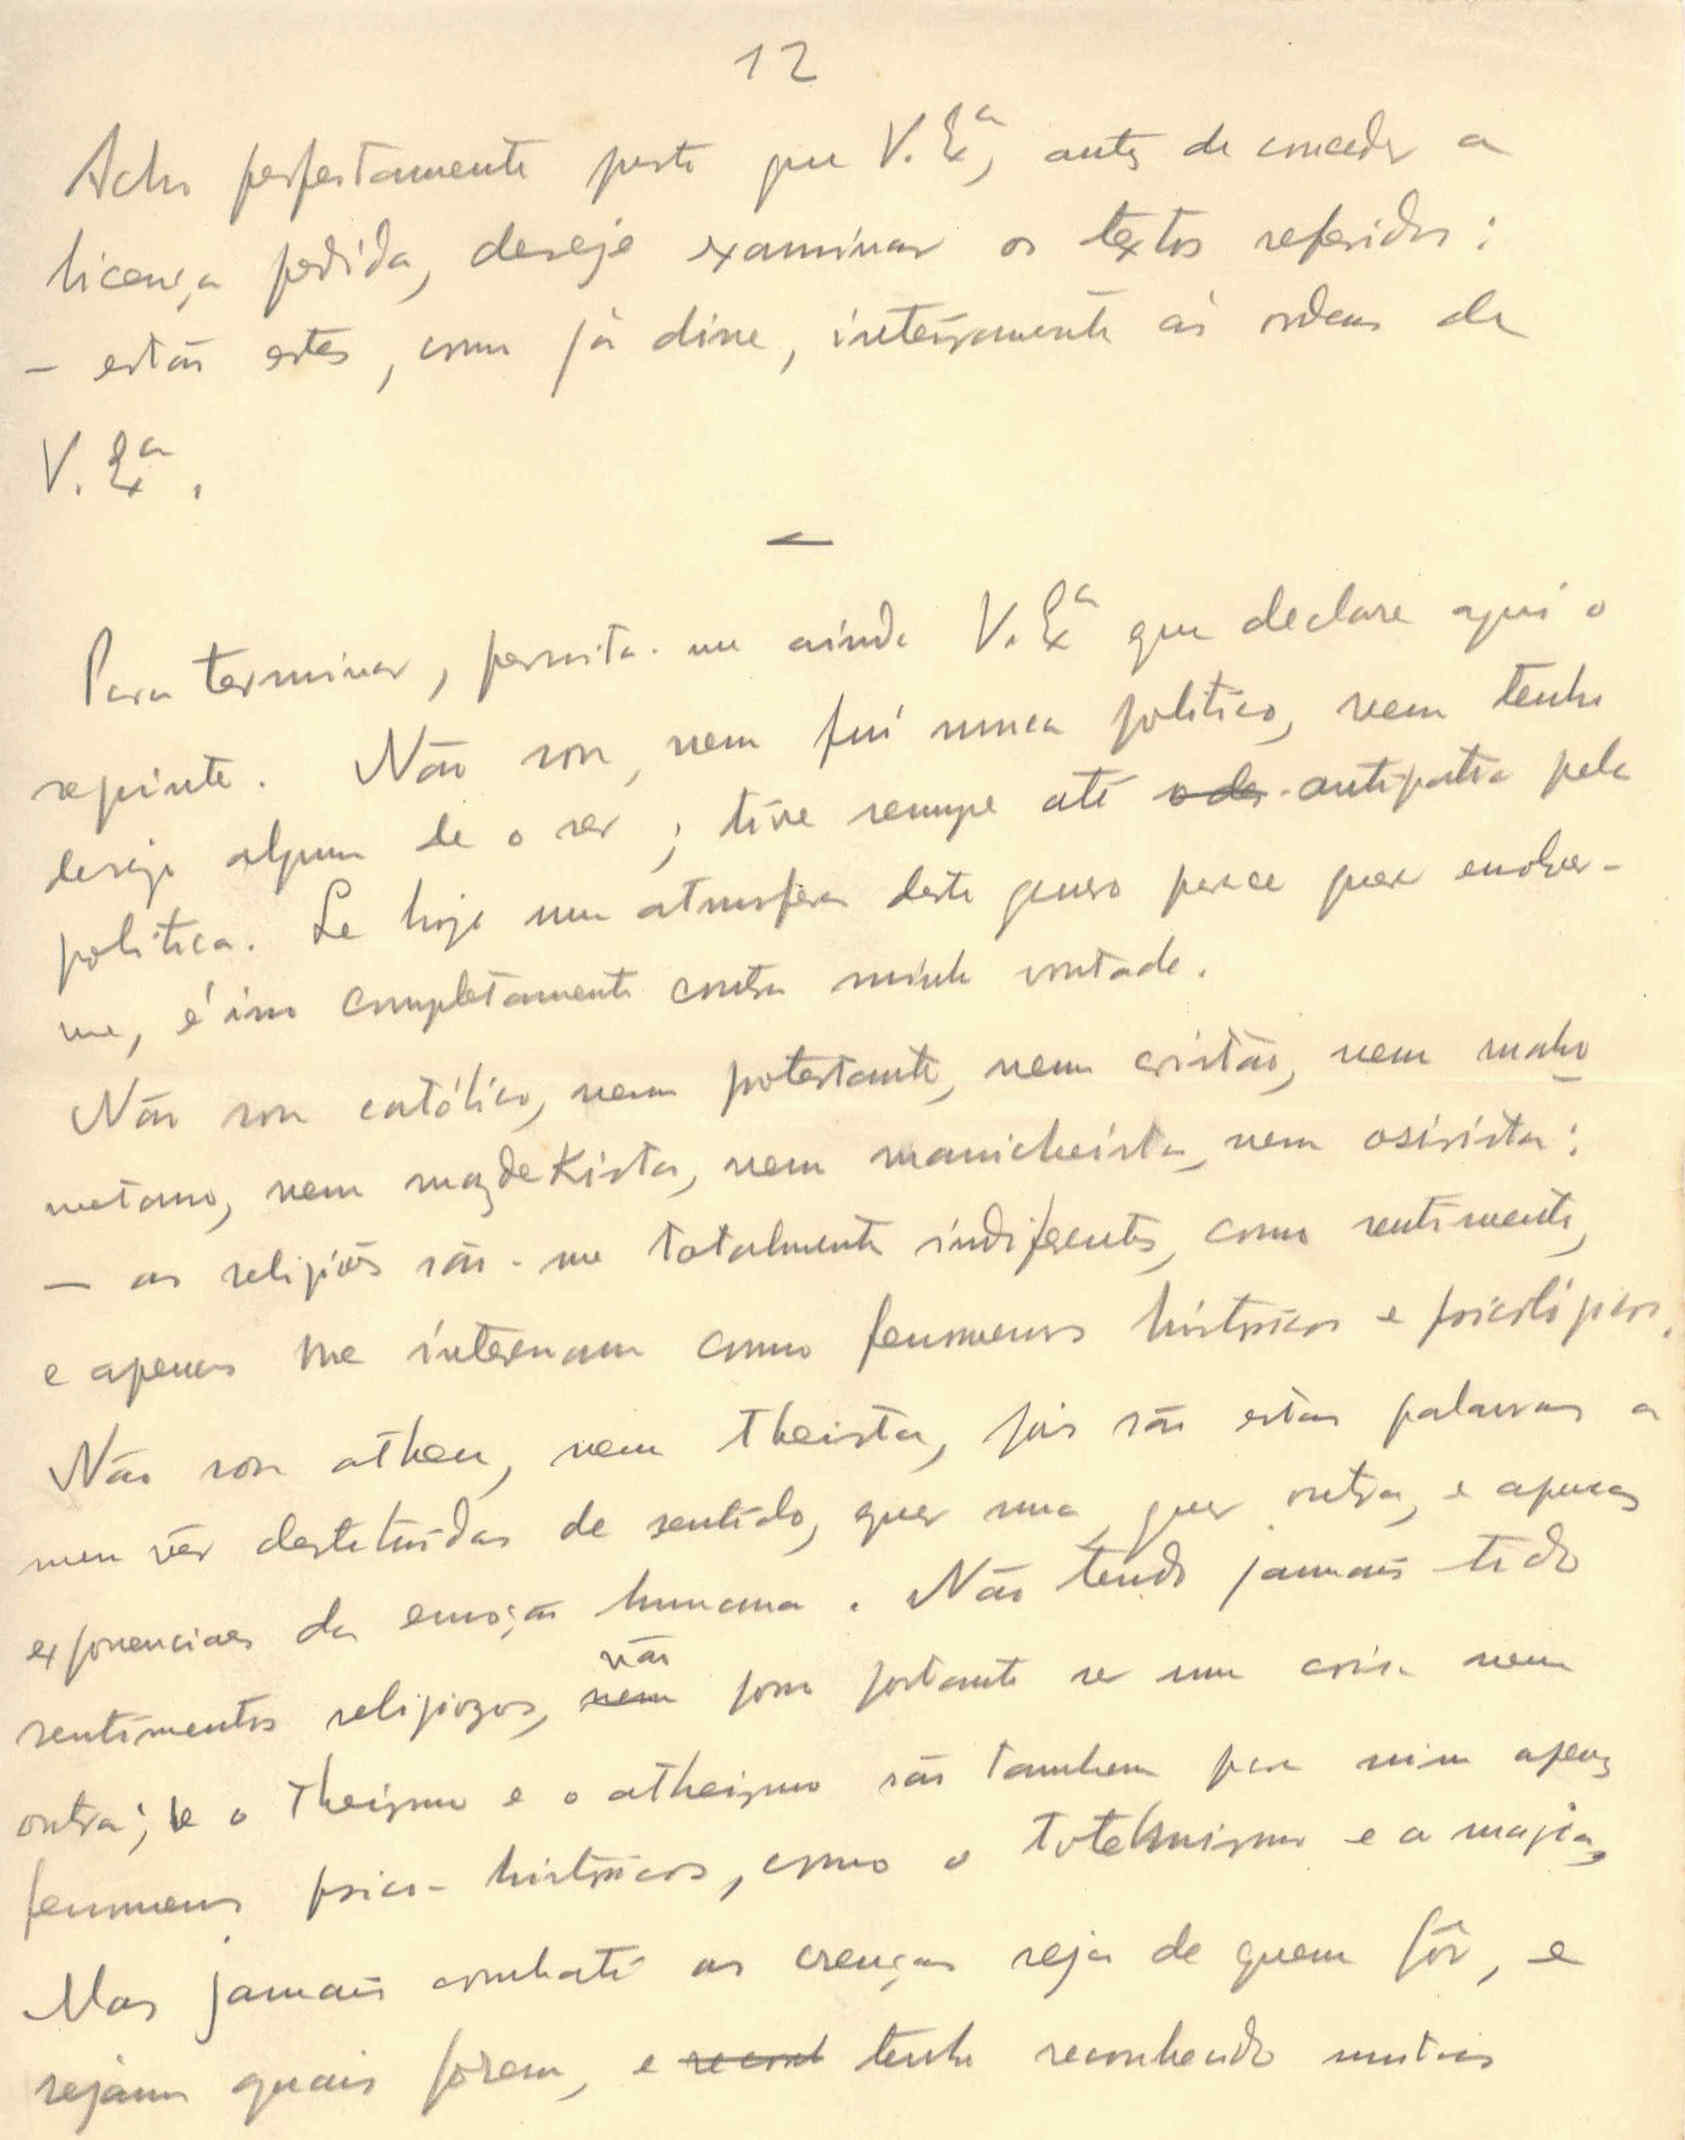 12
Acho perfeitamente justo que V. Ex.ª, antes de conceder a
licença pedida, deseje examinar os textos referidos:
— estão estes, como já disse, inteiramente ás ordens de
V. Ex.ª.
—
Para terminar, permita-me ainda V. Exª que declare aqui o
seguinte. Não sou, nem fui nunca politico, nem tenho
desejo algum de o ser; tive sempre até antipatia pela
politica. Se hoje uma atmosfera deste genero parece querer envolver-
me, é isso completamente contra minha vontade.
Não sou católico, nem protestante, nem cristão, nem maho-
metano, nem mazdekista, nem manicheista, nem osirista:
— as religiões são-me totalmente indiferentes, como sentimento,
e apenas me interessam como fenomenos históricos e psicológicos.
Não sou atheu, nem theista, pois são estas palavras a
meu vêr destetuídas de sentido, quer uma, quer outra, e apenas
exponenciaes da emoção humana. Não tendo jamais tido
sentimentos religiozos, não
nem posso portanto ser uma coisa nem
outra; e o theismo e o atheismo são tambem para mim apenas
fenomenos psico-históricos, como o totemismo e a magia,
Mas jamais combati as crenças seja de quem fôr, e
sejam quais forem, e tenho reconhecido muitas